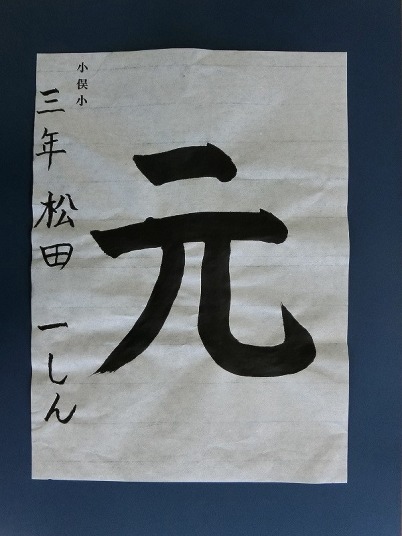 元
小俣小
三年 松田 一しん